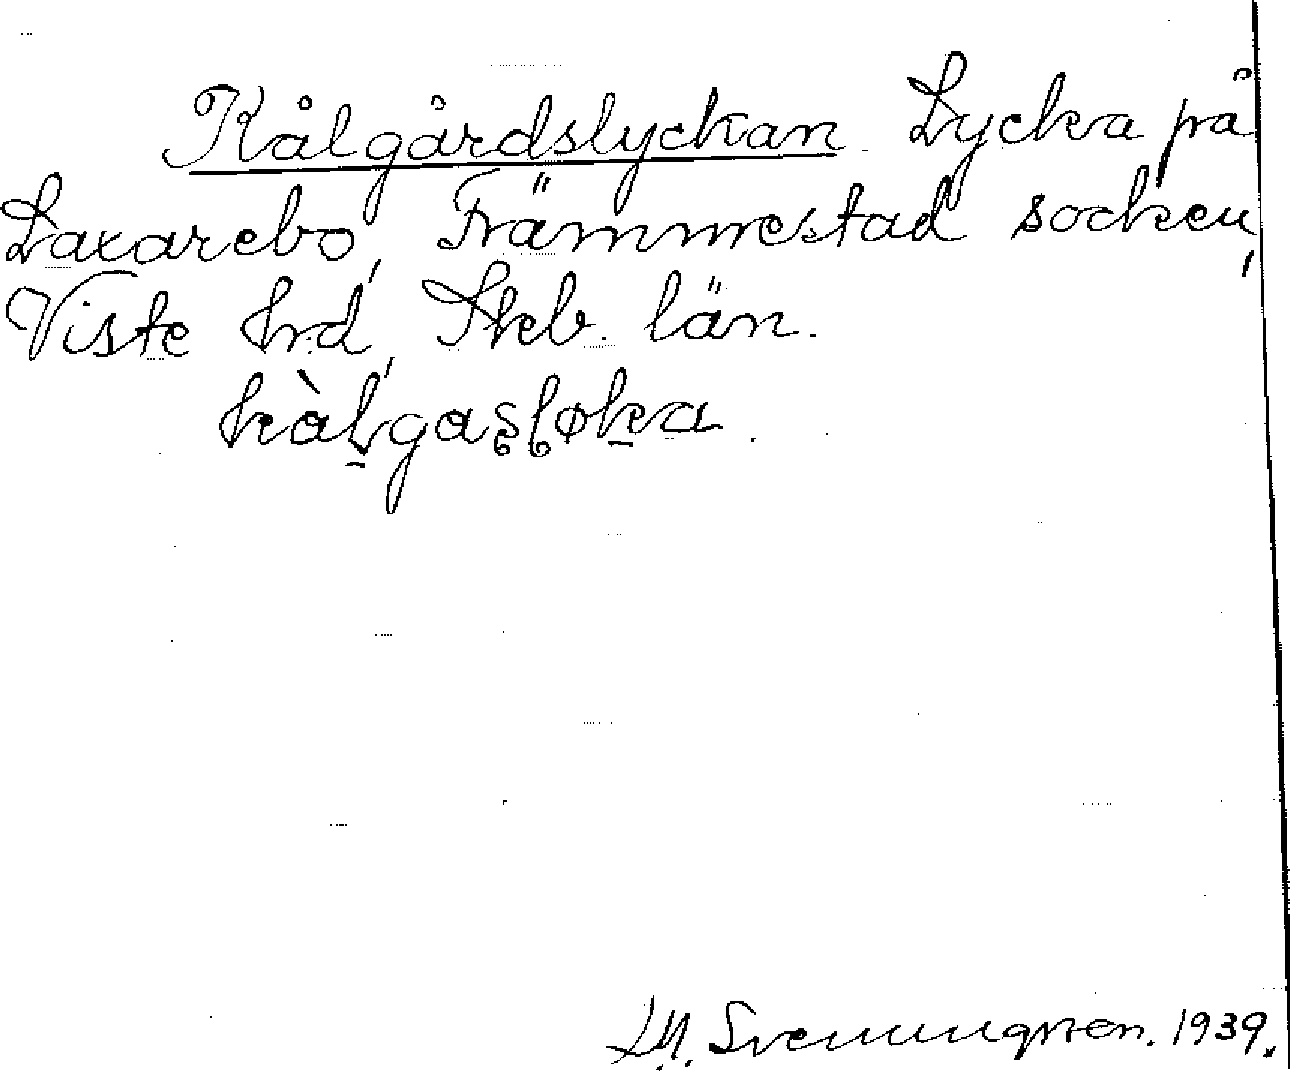 Kålgårdslyckan. Lycka på
Laxarebo, Främmestad socken,
Viste hd, Skbg. län.
kàl̠gas̡l̡øk̠a.
Svenungsson. 1939.